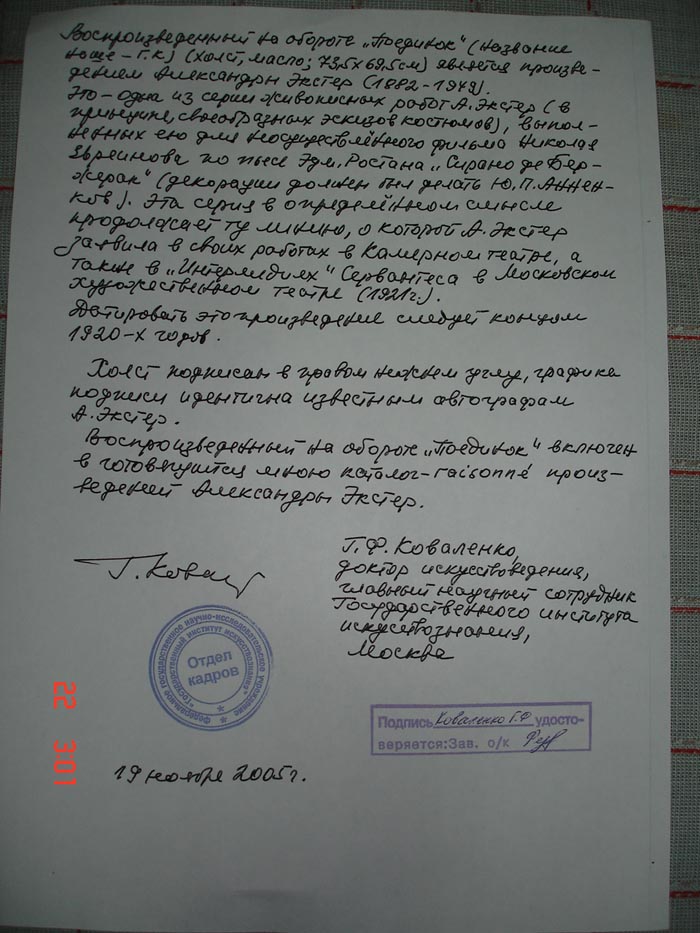 Воспроизведенный на обороте „Поединок" (название
наше – Г.К.) (холст, масло; 73,5х69.5см) является произве-
дением Александры Экстер (1882-1949).
Это – одна из серии живописных работ А. Экстер (в
принципе, своеобразных эскизов костюмов), выпол-
ненных ею для неосуществлённого фильма Николая
Евреинова по пьесе Эдм. Ростана „Сирано де Бер-
жерак" (декорации должен был делать Ю.П. Аннен-
ков). Эта серия в определённом смысле
продолжает ту линию, о которой А. Экстер
заявила в своих работах в Камерном театре, а
также в „Интермедиях" Сервантеса в Московском
художественном театре (1921г.).
Датировать это произведение следует концом
1920-х годов.
Холст подписан в правом нижнем углу, графика
подписи идентична известным автографам
А. Экстер.
Воспроизведенный на обороте „Поединок" включен
в готовящийся мною каталог-raisonné произ-
ведений Александры Экстер.
Г. Кова
Г.Ф. Коваленко,
доктор искусствоведения,
главный научный сотрудник
Государственного института
искусствознания,
Москва
Федеральное государственное научно-исследовательское учреждение
"Государственный институт искусствознания"
Отдел
кадров
Подпись Коваленко Г.Ф. удосто-
веряется: Зав. о/к
19 ноября 2005г.
22 3:01